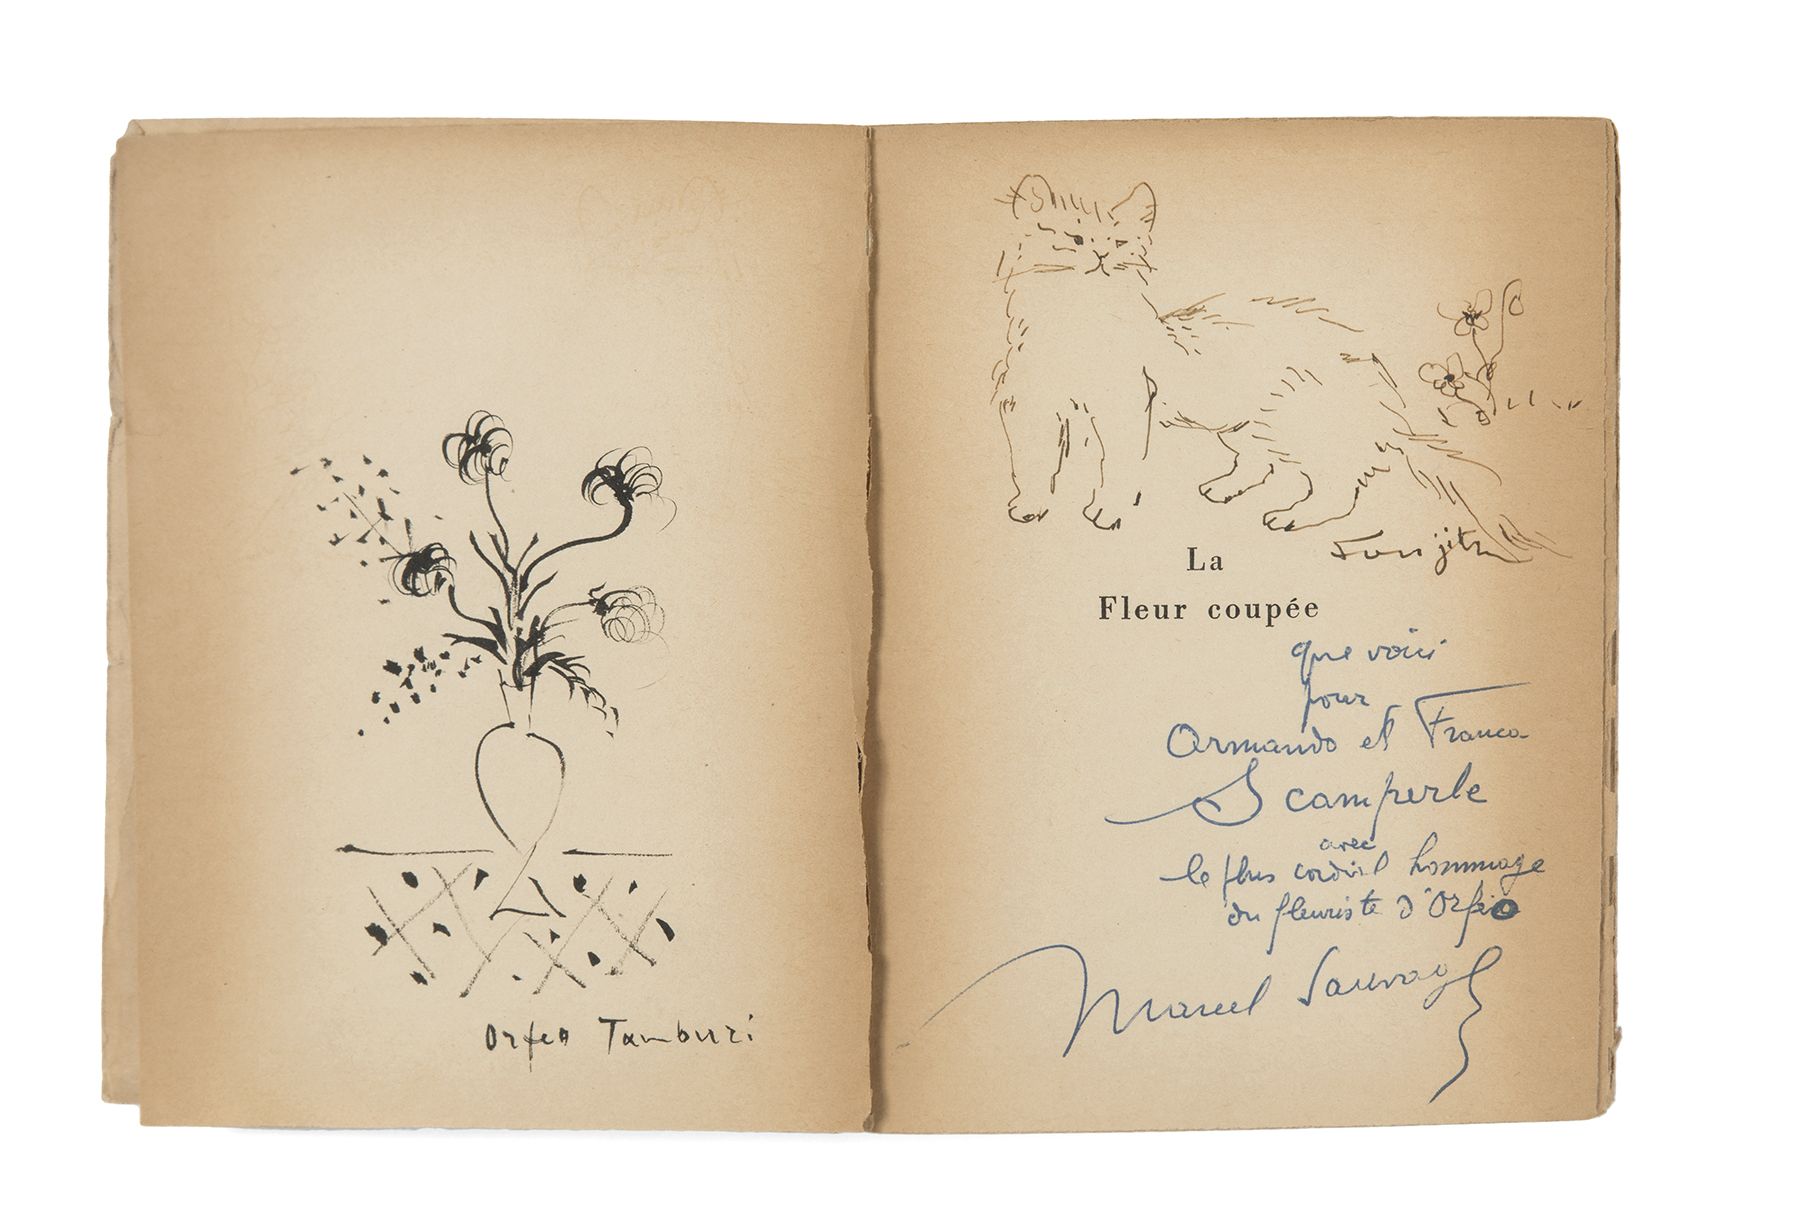 Orfeo Tamburi
Foujita
La
Fleur coupée
que voici
pour
Armando et Franca
Scamperle
avec
le plus cordial hommage
du fleuriste d'Orfeo
Marcel Sauvage